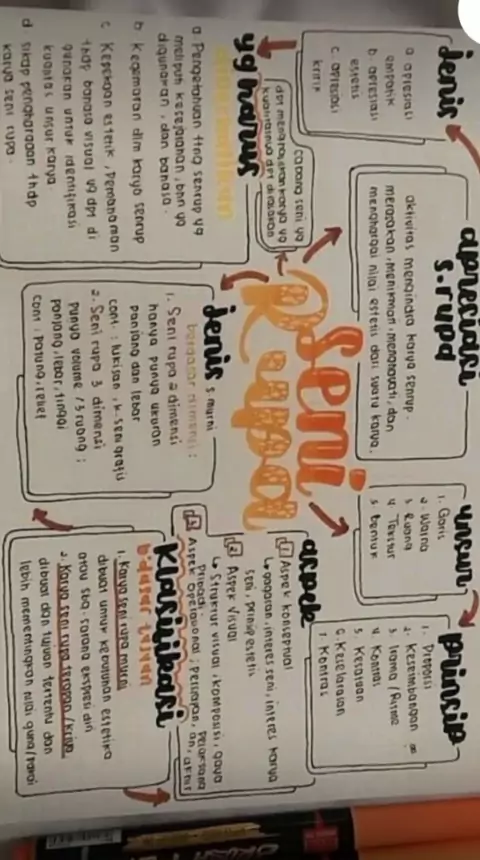 Seni Rupa
cabang seni yg
dpt menghasilkan karya yg
kualitasnya dpt dirasakan
apresiasi
s.rupa
aktivitas mengindra karya senrup.
merasakan, menikmati, menghayati, dan
menghargai nilai estetis dari suatu karya.
jenis
a. apresiasi
empatik
b. apresiasi
estetis
c. apresiasi
kritik
yg harus
a. Pengetahuan ttng senrup yg
meliputi kesejarahan, bhn yg
digunakan, dan bahasa.
b. Kegemaran dlm karya senrup
c. Kepekaan estetik, pemahaman
thdp bahasa visual yg dpt di
gunakan untuk identifikasi
kualitas unsur karya
d. sikap penghargaan thdp
karya seni rupa.
jenis s murni
berdasar dimensi :
1. Seni rupa 2 dimensi
hanya punya ukuran
panjang dan lebar
cont. : lukisan, k. seni grafis
2. Seni rupa 3 dimensi
punya volume / 3 ruang :
panjang, lebar, tinggi
cont : patung, relief
unsur
1. Garis
2. Warna
3. Ruang
4. Tekstur
5. bentuk
prinsip
1. Proporsi
2. Keseimbangan
3. Irama / Ritme
4. Kontras
5. Kesatuan
6. Keselarasan
7. Kontras
aspek
1 Aspek konseptual
↳ gagasan, interes seni, interes karya
seni, prinsip estetis
2 Aspek Visual
↳ Struktur visual, komposisi, gaya
pribadi
3 Aspek operasional : persiapan, pelaksana
an, akhir
Klasifikasi
b'dasar tujuan
1. Karya seni rupa murni
dibuat untuk kebutuhan estetika
atau sbg. sarana ekspresi diri
2. Karya seni rupa terapan / kriya
dibuat dan tujuan tertentu dan
lebih mementingkan nilai guna/pakai